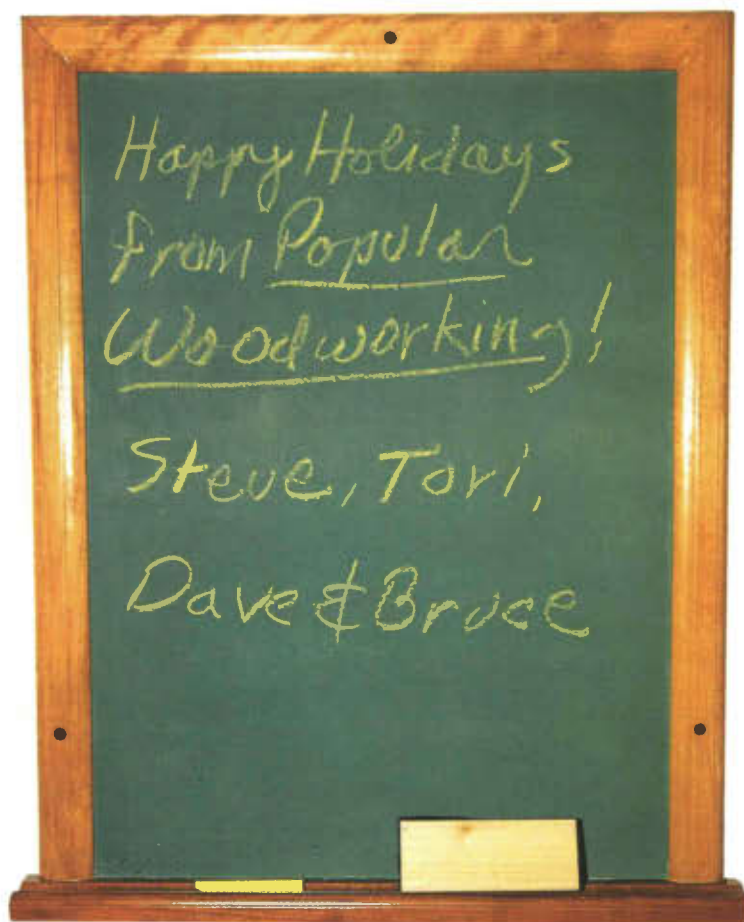 Happy Holidays
from Popular
Woodworking!
Steve, Tori,
Dave & Bruce